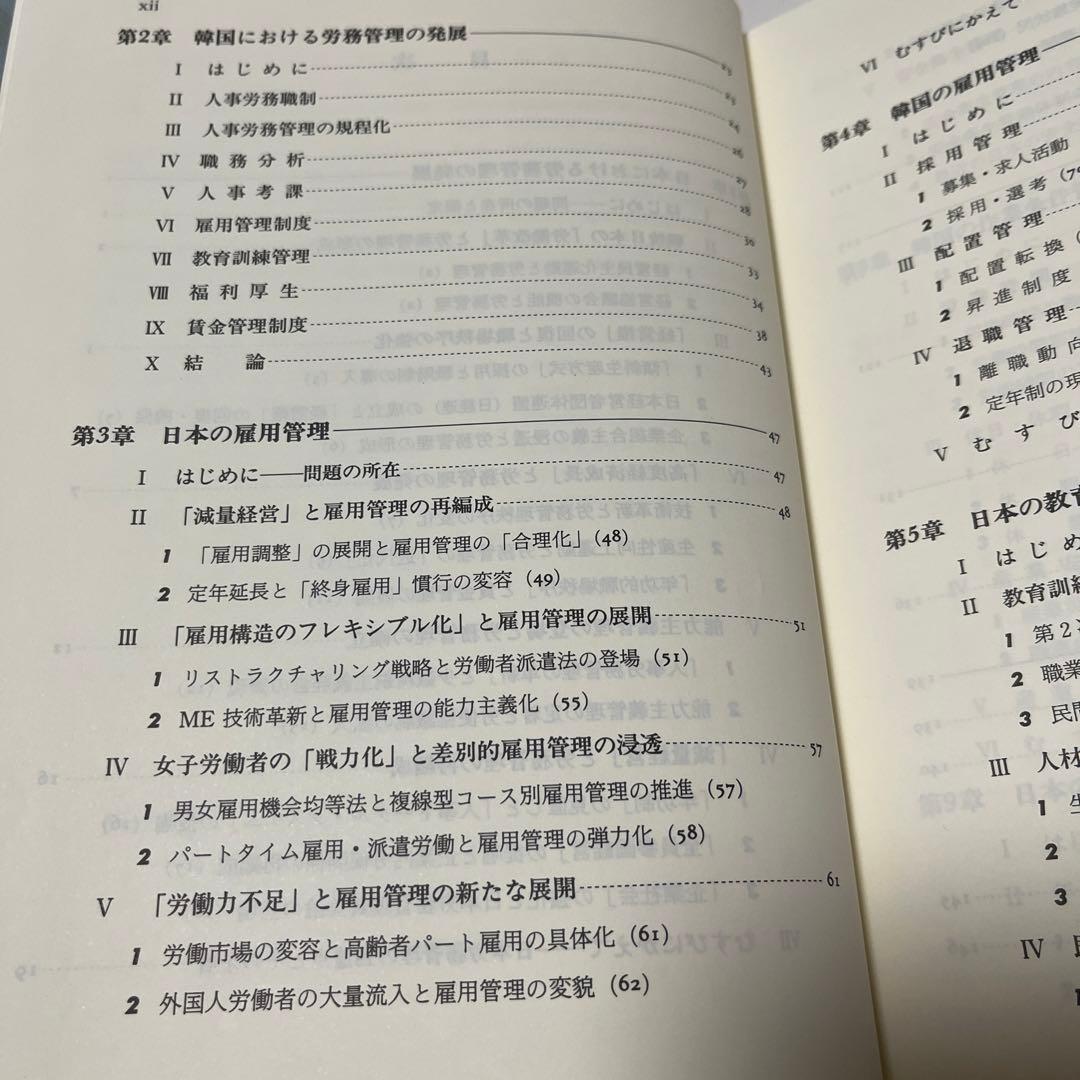 xii
第2章 韓国における労務管理の発展 23
I はじめに 23
II 人事労務職制 24
III 人事労務管理の規程化 26
IV 職務分析 27
V 人事考課 28
VI 雇用管理制度 30
VII 教育訓練管理 33
VIII 福利厚生 34
IX 賃金管理制度 38
X 結論 43
第3章 日本の雇用管理 47
I はじめに――問題の所在 47
II 「減量経営」と雇用管理の再編成 48
1 「雇用調整」の展開と雇用管理の「合理化」(48)
2 定年延長と「終身雇用」慣行の変容(49)
III 「雇用構造のフレキシブル化」と雇用管理の展開 51
1 リストラクチャリング戦略と労働者派遣法の登場(51)
2 ME技術革新と雇用管理の能力主義化(55)
IV 女子労働者の「戦力化」と差別的雇用管理の浸透 57
1 男女雇用機会均等法と複線型コース別雇用管理の推進(57)
2 パートタイム雇用・派遣労働と雇用管理の弾力化(58)
V 「労働力不足」と雇用管理の新たな展開 61
1 労働市場の変容と高齢者パート雇用の具体化(61)
2 外国人労働者の大量流入と雇用管理の変貌(62)
VI むすびにかえて
第4章 韓国の雇用管理
I はじめに
II 採用管理
1 募集・求人活動
2 採用・選考(79
III 配置管理
1 配置転換(
2 昇進制度
IV 退職管理
1 離職動向
2 定年制の現
V むすび
第5章 日本の教育
I はじめ
II 教育訓練
1 第2
2 職業
3 民間
III 人材
1 生
2
3
IV
1